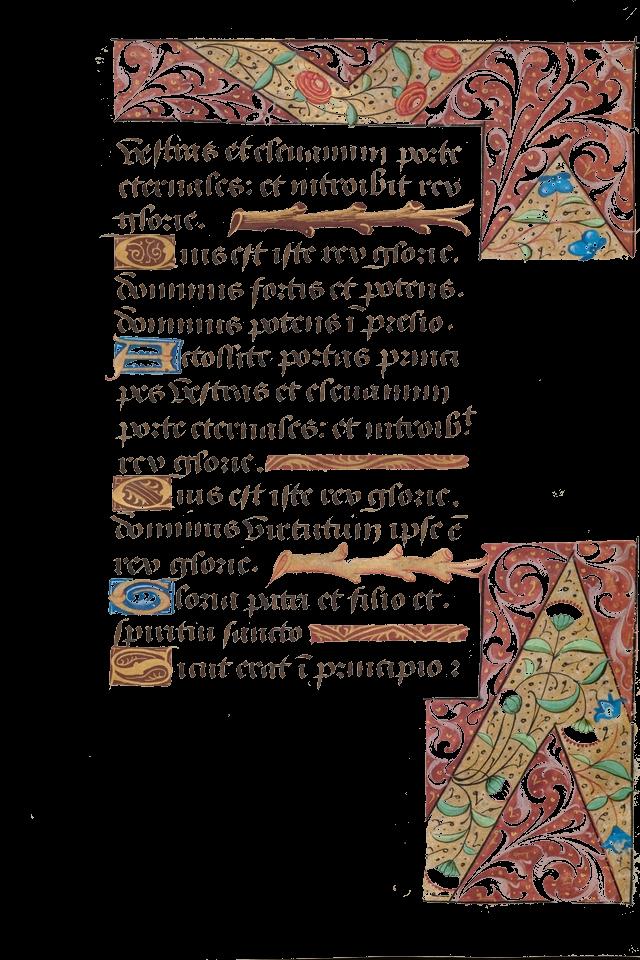 vestras et eleuamini porte
eternales: et introibit rex
glorie.
Quis est iste rex glorie.
dominus fortis et potens.
dominus potens ī prelio.
Attollite portas princi
pes vestras et eleuamini
porte eternales: et introibᵗ
rex glorie.
Quis est iste rex glorie.
dominus virtutum ipse ē
rex glorie.
Gloria patri et filio et.
spiritui sancto
Sicut erat ī principio ⁊